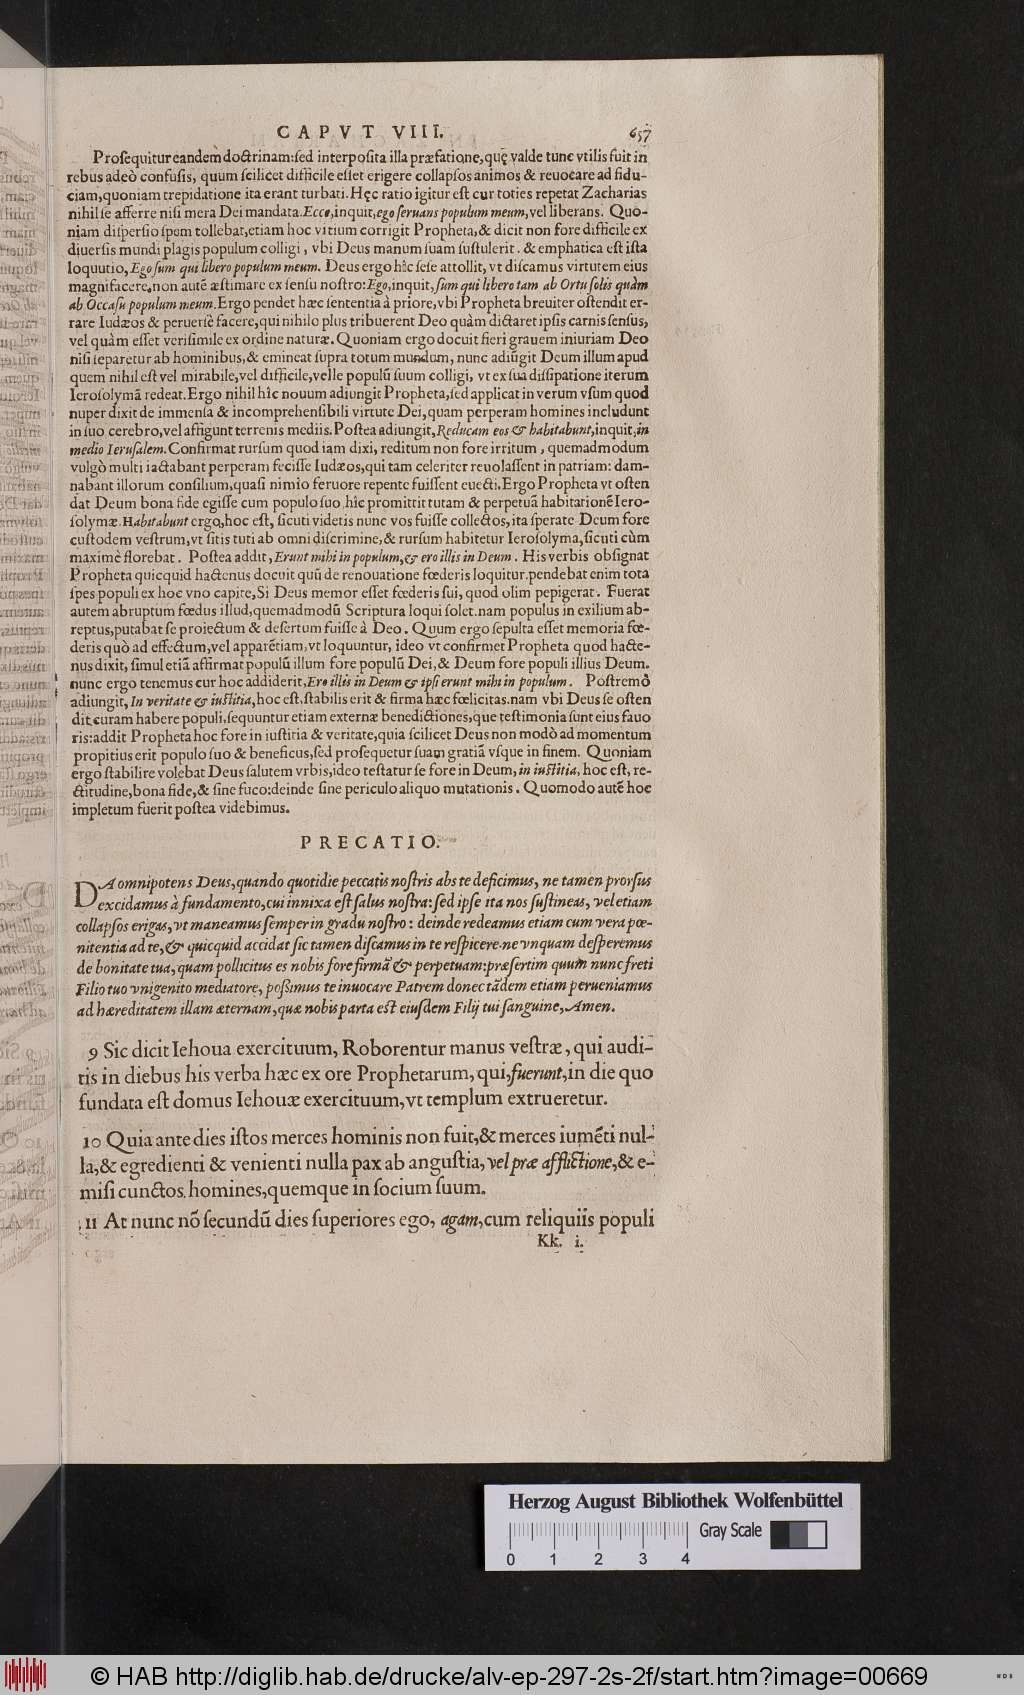 CAPVT VIII. 657
Proſequitur eandem doctrinam: ſed interpoſita illa præfatione, quę valde tunc vtilis fuit in
rebus adeò confuſis, quum ſcilicet difficile eſſet erigere collapſos animos & reuocare ad fidu-
ciam, quoniam trepidatione ita erant turbati. Hęc ratio igitur eſt cur toties repetat Zacharias
nihil ſe afferre niſi mera Dei mandata. Ecce, inquit, ego ſeruans populum meum, vel liberans. Quo-
niam diſperſio ſpem tollebat, etiam hoc vitium corrigit Propheta, & dicit non fore difficile ex
diuerſis mundi plagis populum colligi, vbi Deus manum ſuam ſuſtulerit. & emphatica eſt iſta
loquutio, Ego ſum qui libero populum meum. Deus ergo hîc ſeſe attollit, vt diſcamus virtutem eius
magnifacere, non autē æſtimare ex ſenſu noſtro: Ego, inquit, ſum qui libero tam ab Ortu ſolis quàm
ab Occaſu populum meum. Ergo pendet hæc ſententia à priore, vbi Propheta breuiter oſtendit er-
rare Iudæos & peruerſè facere, qui nihilo plus tribuerent Deo quàm dictaret ipſis carnis ſenſus,
vel quàm eſſet veriſimile ex ordine naturæ. Quoniam ergo docuit fieri grauem iniuriam Deo
niſi ſeparetur ab hominibus, & emineat ſupra totum mundum, nunc adiūgit Deum illum apud
quem nihil eſt vel mirabile, vel difficile, velle populū ſuum colligi, vt ex ſua diſſipatione iterum
Ieroſolymā redeat. Ergo nihil hîc nouum adiungit Propheta, ſed applicat in verum vſum quod
nuper dixit de immenſa & incomprehenſibili virtute Dei, quam perperam homines includunt
in ſuo cerebro, vel affigunt terrenis mediis. Poſtea adiungit, Reducam eos & habitabunt, inquit, in
medio Ieruſalem. Confirmat rurſum quod iam dixi, reditum non fore irritum, quemadmodum
vulgò multi iactabant perperam feciſſe Iudæos, qui tam celeriter reuolaſſent in patriam: dam-
nabant illorum conſilium, quaſi nimio feruore repente fuiſſent euecti. Ergo Propheta vt oſten
dat Deum bona fide egiſſe cum populo ſuo, hîc promittit tutam & perpetuā habitationē Iero-
ſolymæ. Habitabunt ergo, hoc eſt, ſicuti videtis nunc vos fuiſſe collectos, ita ſperate Deum fore
cuſtodem veſtrum, vt ſitis tuti ab omni diſcrimine, & rurſum habitetur Ieroſolyma, ſicuti cùm
maximè florebat. Poſtea addit, Erunt mihi in populum, & ero illis in Deum. His verbis obſignat
Propheta quicquid hactenus docuit quū de renouatione fœderis loquitur. pendebat enim tota
ſpes populi ex hoc vno capite, Si Deus memor eſſet fœderis ſui, quod olim pepigerat. Fuerat
autem abruptum fœdus illud, quemadmodū Scriptura loqui ſolet. nam populus in exilium ab-
reptus, putabat ſe proiectum & deſertum fuiſſe à Deo. Quum ergo ſepulta eſſet memoria fœ-
deris quò ad effectum, vel apparētiam, vt loquuntur, ideo vt confirmet Propheta quod hacte-
nus dixit, ſimul etiā affirmat populū illum fore populū Dei, & Deum fore populi illius Deum.
nunc ergo tenemus cur hoc addiderit, Ero illis in Deum & ipſi erunt mihi in populum. Poſtremò
adiungit, In veritate & iuſtitia, hoc eſt, ſtabilis erit & firma hæc fœlicitas. nam vbi Deus ſe oſten
dit curam habere populi, ſequuntur etiam externæ benedictiones, que teſtimonia ſunt eius fauo
ris: addit Propheta hoc fore in iuſtitia & veritate, quia ſcilicet Deus non modò ad momentum
propitius erit populo ſuo & beneficus, ſed proſequetur ſuam gratiā vſque in finem. Quoniam
ergo ſtabilire volebat Deus ſalutem vrbis, ideo teſtatur ſe fore in Deum, in iuſtitia, hoc eſt, re-
ctitudine, bona fide, & ſine fuco: deinde ſine periculo aliquo mutationis. Quomodo autē hoc
impletum fuerit poſtea videbimus.
PRECATIO.
DA omnipotens Deus, quando quotidie peccatis noſtris abs te deficimus, ne tamen prorſus
excidamus à fundamento, cui innixa eſt ſalus noſtra: ſed ipſe ita nos ſuſtineas, vel etiam
collapſos erigas, vt maneamus ſemper in gradu noſtro: deinde redeamus etiam cum vera pœ-
nitentia ad te, & quicquid accidat ſic tamen diſcamus in te reſpicere. ne vnquam deſperemus
de bonitate tua, quam pollicitus es nobis fore firmā & perpetuam: præſertim quum nunc freti
Filio tuo vnigenito mediatore, poſsimus te inuocare Patrem donec tādem etiam perueniamus
ad hæreditatem illam æternam, quæ nobis parta eſt eiuſdem Filij tui ſanguine, Amen.
9 Sic dicit Iehoua exercituum, Roborentur manus veſtræ, qui audi-
tis in diebus his verba hæc ex ore Prophetarum, qui, fuerunt, in die quo
fundata eſt domus Iehouæ exercituum, vt templum extrueretur.
10 Quia ante dies iſtos merces hominis non fuit, & merces iumēti nul-
la, & egredienti & venienti nulla pax ab anguſtia, vel præ afflictione, & e-
miſi cunctos homines, quemque in ſocium ſuum.
11 At nunc nō ſecundū dies ſuperiores ego, agam, cum reliquiis populi
Kk. i.
Herzog August Bibliothek Wolfenbüttel
Gray Scale
0 1 2 3 4
© HAB http://diglib.hab.de/drucke/alv-ep-297-2s-2f/start.htm?image=00669